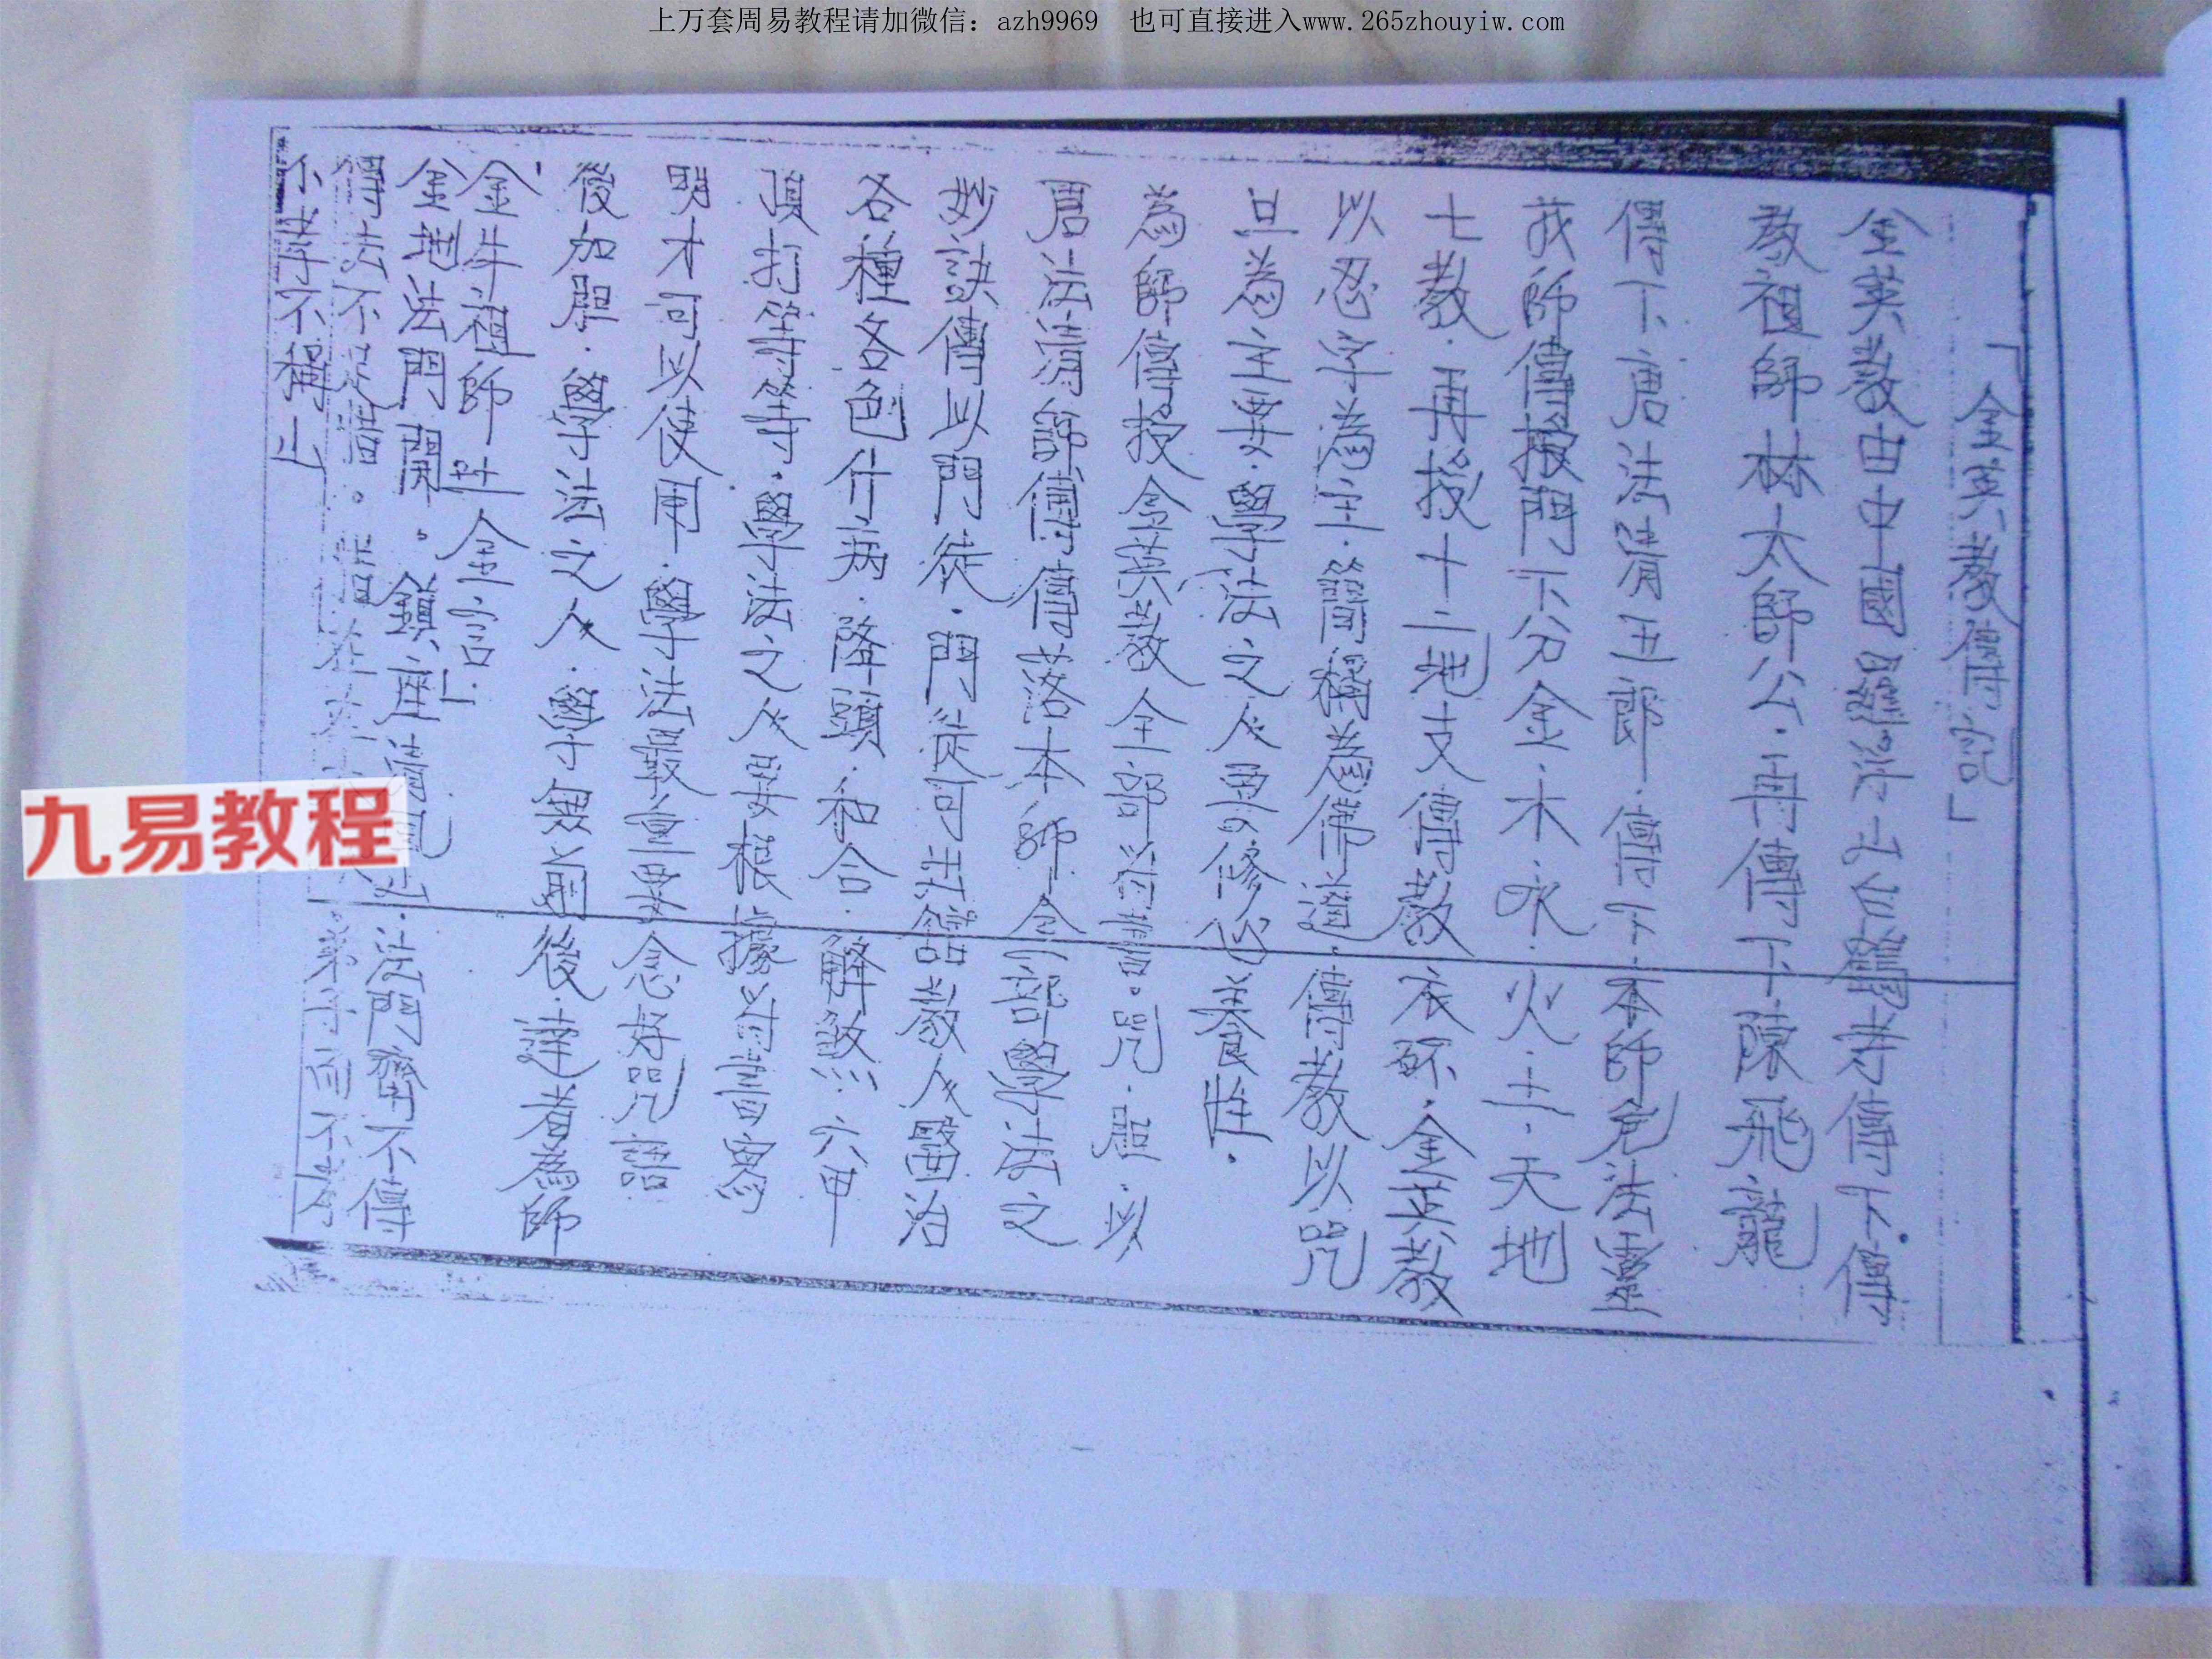 上万套周易教程请加微信：azh9969 也可直接进入www.265zhouyiw.com
「金英教傳咒」
金英教由中國羅浮山 傳下傳
教祖師林太師公．再傳下陳飛龍
傳下唐法清五郎．傳下本師 法
我師傳授門下分金．木．水．火．土．天地
七教．再授十二地支傳教 ．金英教
以忍字為主．簡稱為佛道．傳教以咒
旦為主要．學法之人要修心養性．
為師傳授金英教全部符書。咒．罡．以
唐法清 傳傳落本師全部學法之
妙訣傳以門徒．門徒可出 教人醫治
各種各色什病．降頭．和合．解煞．六甲
項打等等．學法之人要根據符書
明才可以使用．學法最重要念好咒語
後加罡．學法之人．學無前後．達者為師
金牛祖師吐金言
金地法門開。鎮座 ．法門 不傳
傳法不足惜。惜在
小 不稱止
九易教程